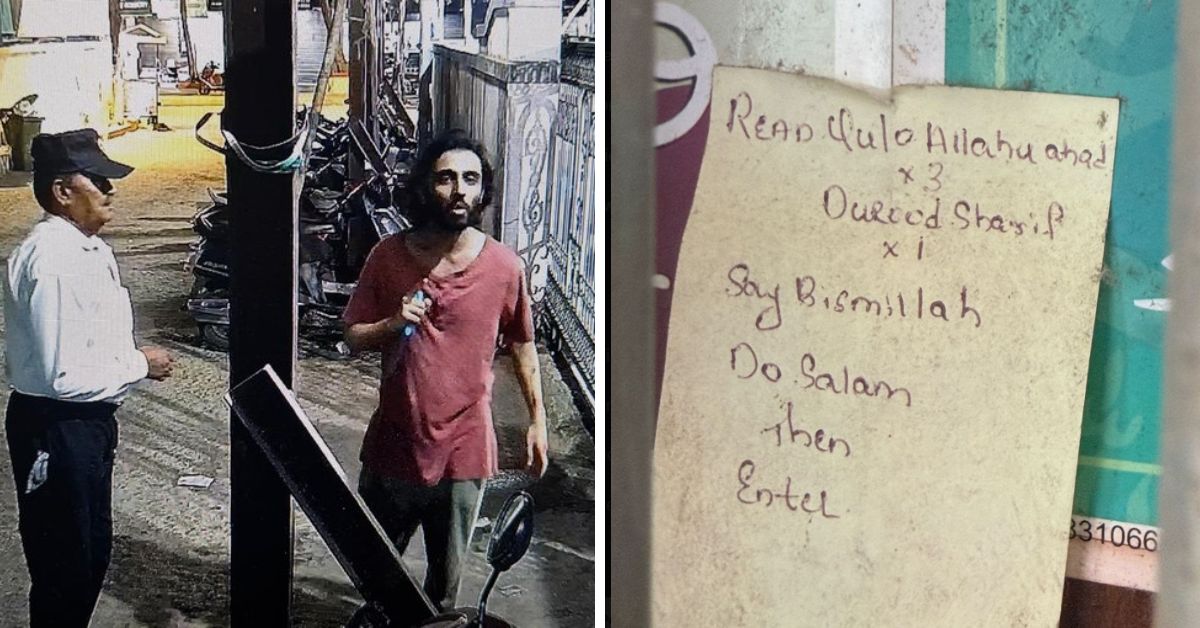 READ Qulo Allahu ahad
x 3
Durood Sharif
x 1
Say Bismillah
Do Salam
Then
Enter
331066